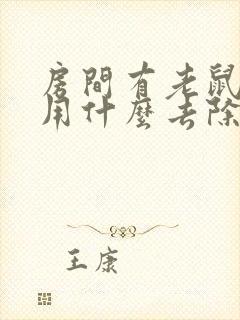 房間有老鼠
用什麼去除
王康